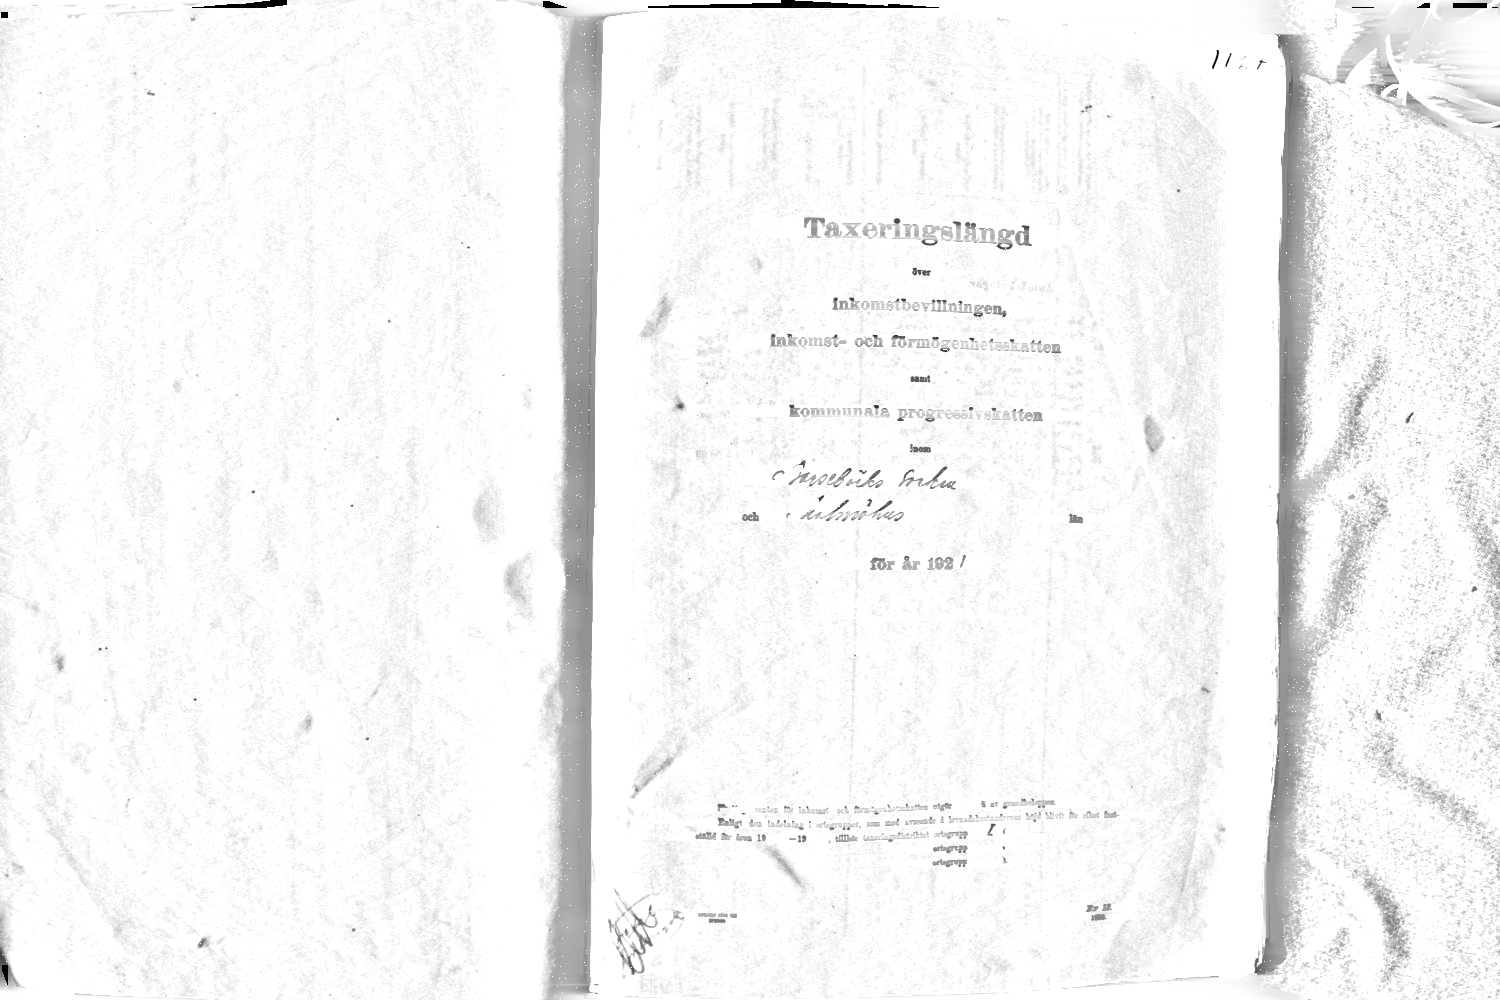 Taxeringslängd
över
inkomstbevillningen,
inkomst- och förmögenhetsskatten
samt
kommunala progressivskatten
inom
Barsebäcks Socken
och Malmöhus län
för år 1921
för inkomst- och förmögenhetsskatten utgör % av grundbeloppen.
Enligt den indelning i ortsgrupper, som med avseende å levnadskostnadernas höjd blivit för riket fast-
ställd för åren 19 —19 , tillhör taxeringsdistriktet ortsgrupp I
ortsgrupp
ortsgrupp
Nr 12.